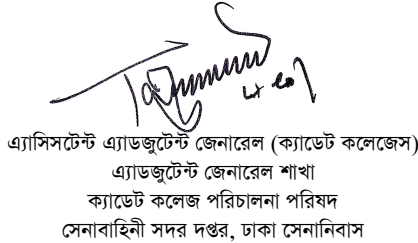 এ্যাসিসটেন্ট এ্যাডজুটেন্ট জেনারেল (ক্যাডেট কলেজেস)
এ্যাডজুটেন্ট জেনারেল শাখা
ক্যাডেট কলেজ পরিচালনা পরিষদ
সেনাবাহিনী সদর দপ্তর, ঢাকা সেনানিবাস